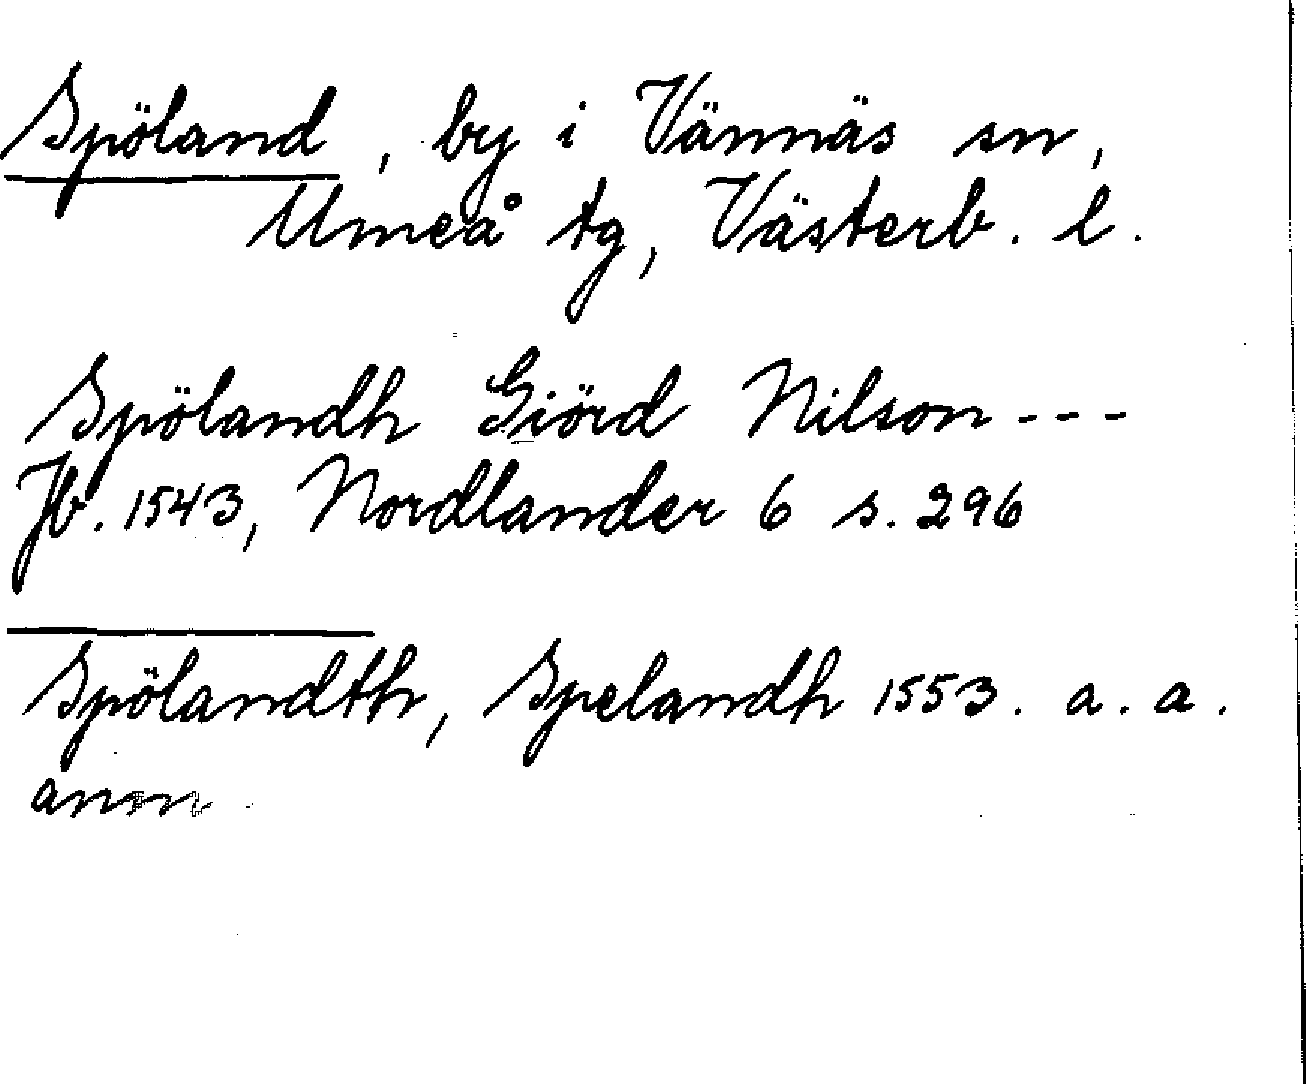 Spöland, by i Vännäs sn,
Umeå tg, Västerb. l.
Spölandh Giörd Nilson ---
Jb. 1543, Nordlander 6 s. 296
Spölandth, Spelandh 1553. a. a.
anm.